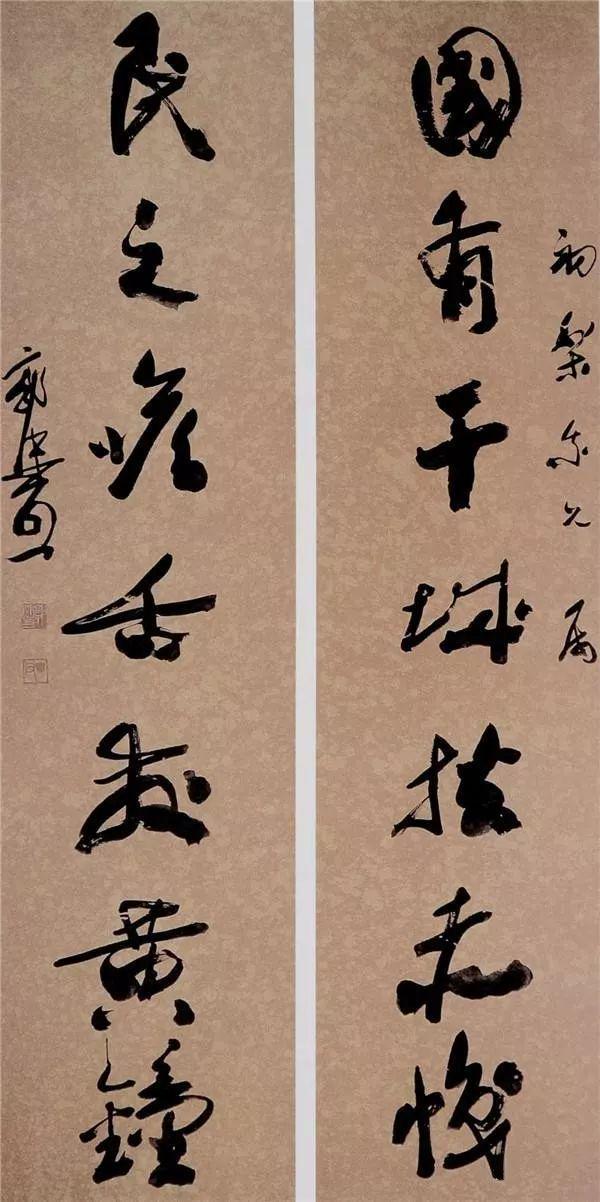 初梨兄屬
國有干城扶赤幟
民之喉舌發黃鐘
郭沫若